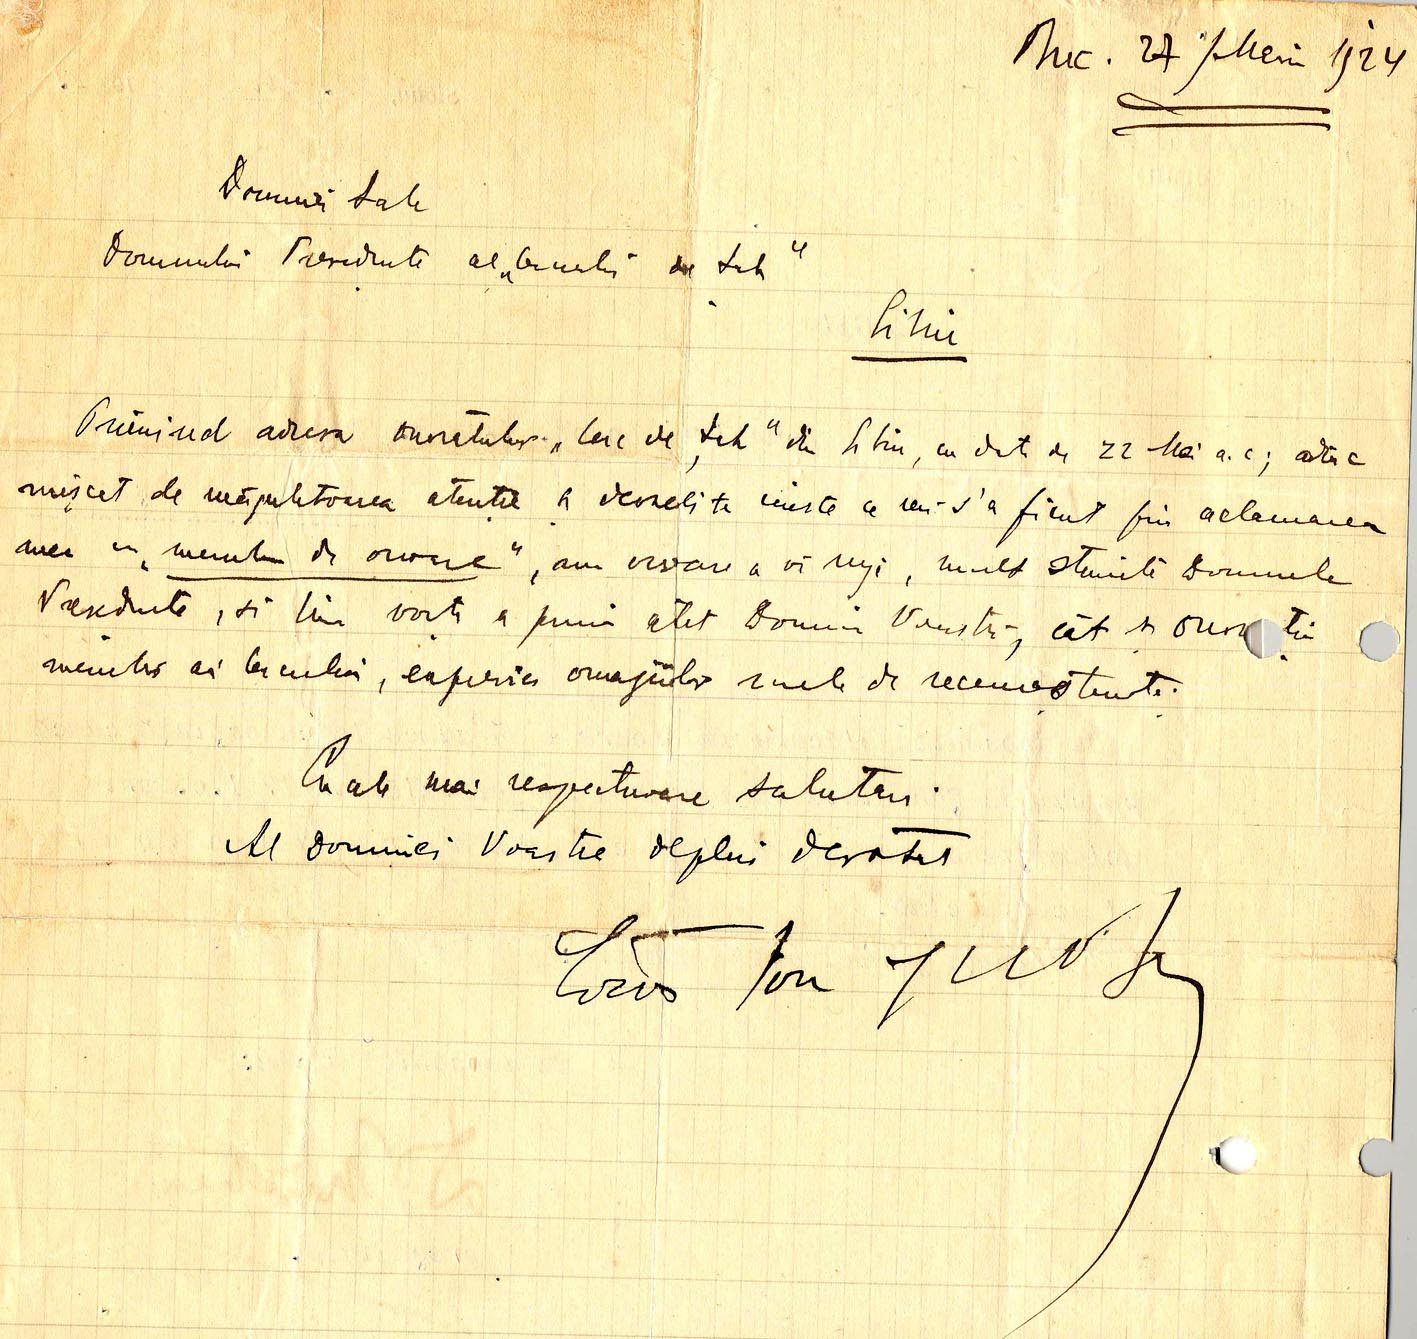 Buc. 27 Maiu 1924
Domniei Sale
Domnului Președinte al „Cercului de șah"
Sibiu
Primind adresa onoratului „Cerc de șah" din Sibiu, cu data de 22 Mai a.c; adânc
mișcat de măgulitoarea atenție și deosebita cinste ce mi s'a făcut prin aclamarea
mea ca „membru de onoare", am onoare a vă ruga, mult stimate Domnule
Președinte, să bine voiți a primi atât Domnia Voastră, cât și onorații
membri ai Cercului, expresia omagiilor mele de recunoștință.
Cu cele mai respectuoase salutări
Al Domniei Voastre deplin devotat
Ion